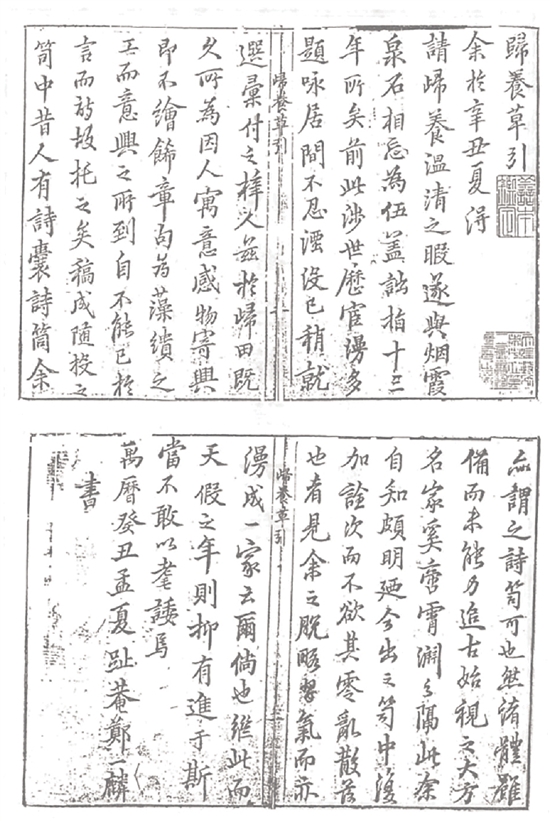 歸養草引
余於辛丑夏得
請歸養溫凊之暇遂與烟霞
泉石相忘為伍蓋詘指十三
年所矣前此涉世歷宦謾多
題咏居間不忍湮沒已稍就
歸養草引
選彙付之梓人茲於歸田既
久所為因人寓意感物寄興
即不繪餙章句為藻繢之
工而意興之所到自不能已於
言而詩托之矣稿成随投之
笥中昔人有詩囊詩筒余
亦謂之詩笥可也然諸體雖
備而未能力追古始視之大方
名家奚啻霄淵之隔此余
自知頗明廼今出之笥中復
加詮次而不欲其零亂散落
也者見余之脫略習氣而亦
歸養草引
謾成一家云爾倘也繼此而
天假之年則抑有進于斯
當不敢以耄諉焉
萬曆癸丑孟夏趾菴鄭一麟
書